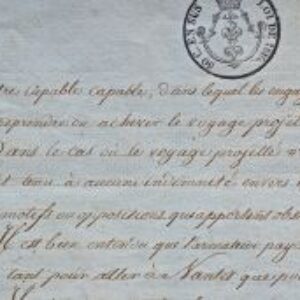 50 C. EN SUS LOI DU
tre capable capable, dans lequel les enga
reprendre ou achever le voyage projet
Dans le cas où le voyage projetté n
tenu à aucune indemnité envers
motifs ou oppositions qu'apportent obs
Il est bien entendu que l'armateur pay
tant pour aller à Nantes que p